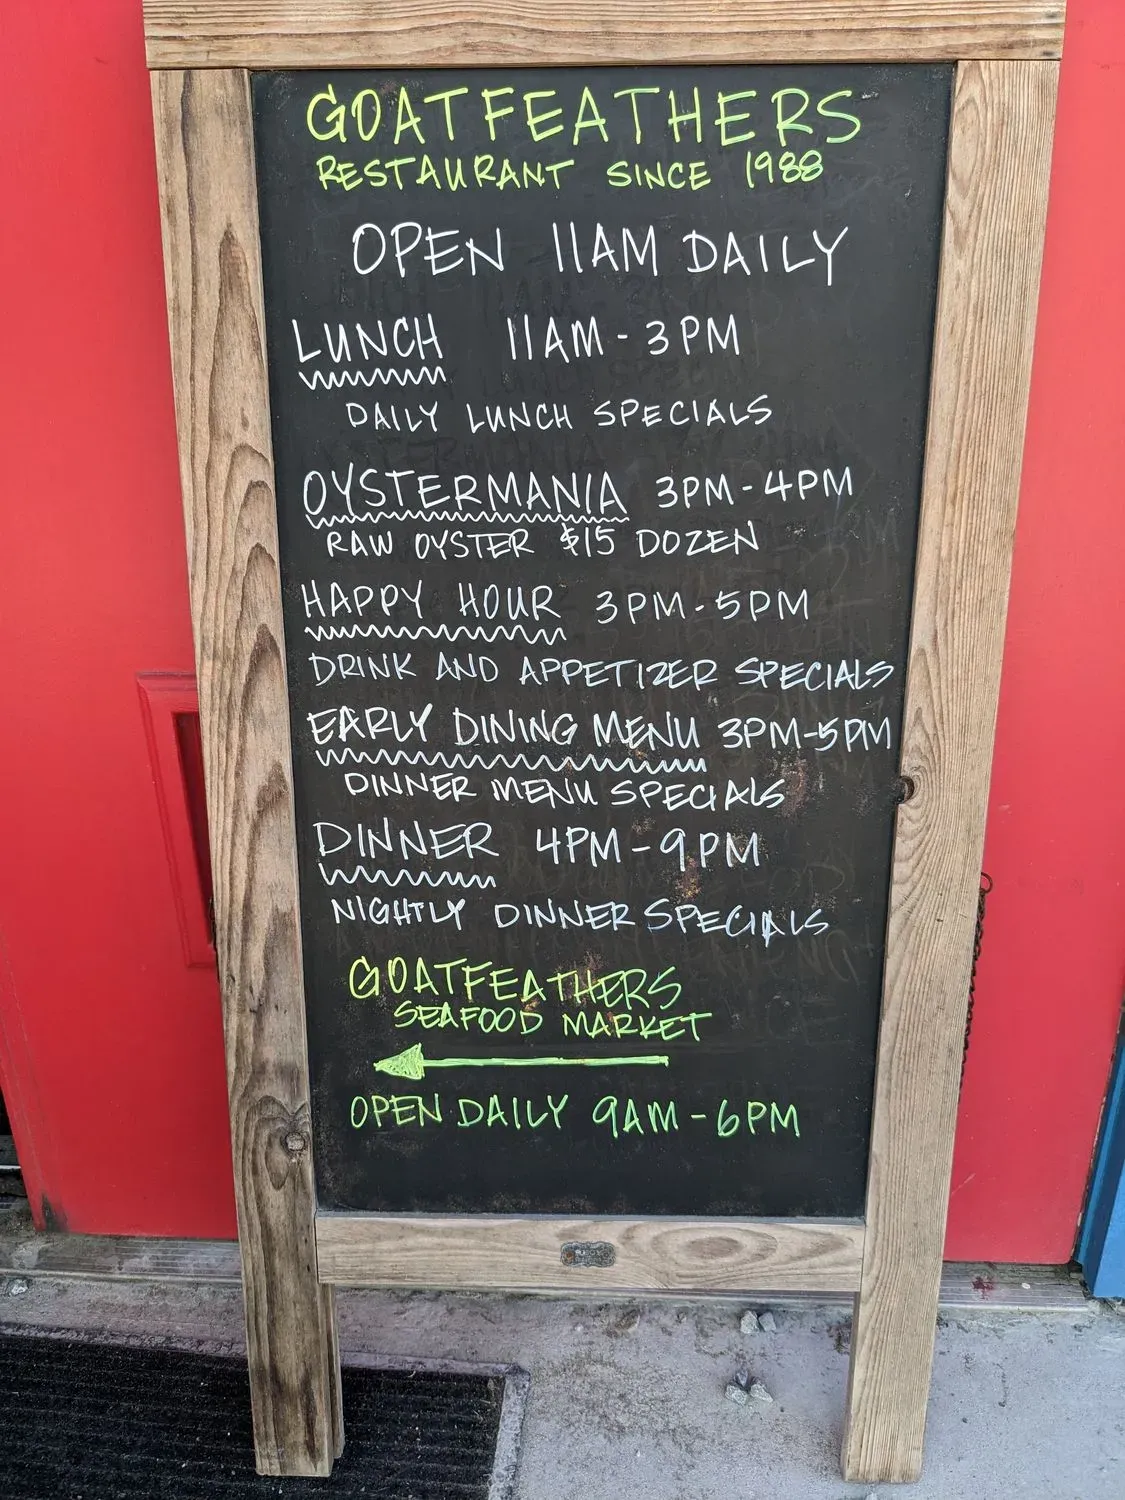 GOATFEATHERS
RESTAURANT SINCE 1988
OPEN 11AM DAILY
LUNCH 11AM-3PM
DAILY LUNCH SPECIALS
OYSTERMANIA 3PM-4PM
RAW OYSTER $15 DOZEN
HAPPY HOUR 3PM-5PM
DRINK AND APPETIZER SPECIALS
EARLY DINING MENU 3PM-5PM
DINNER MENU SPECIALS
DINNER 4PM-9PM
NIGHTLY DINNER SPECIALS
GOATFEATHERS
SEAFOOD MARKET
OPEN DAILY 9AM-6PM